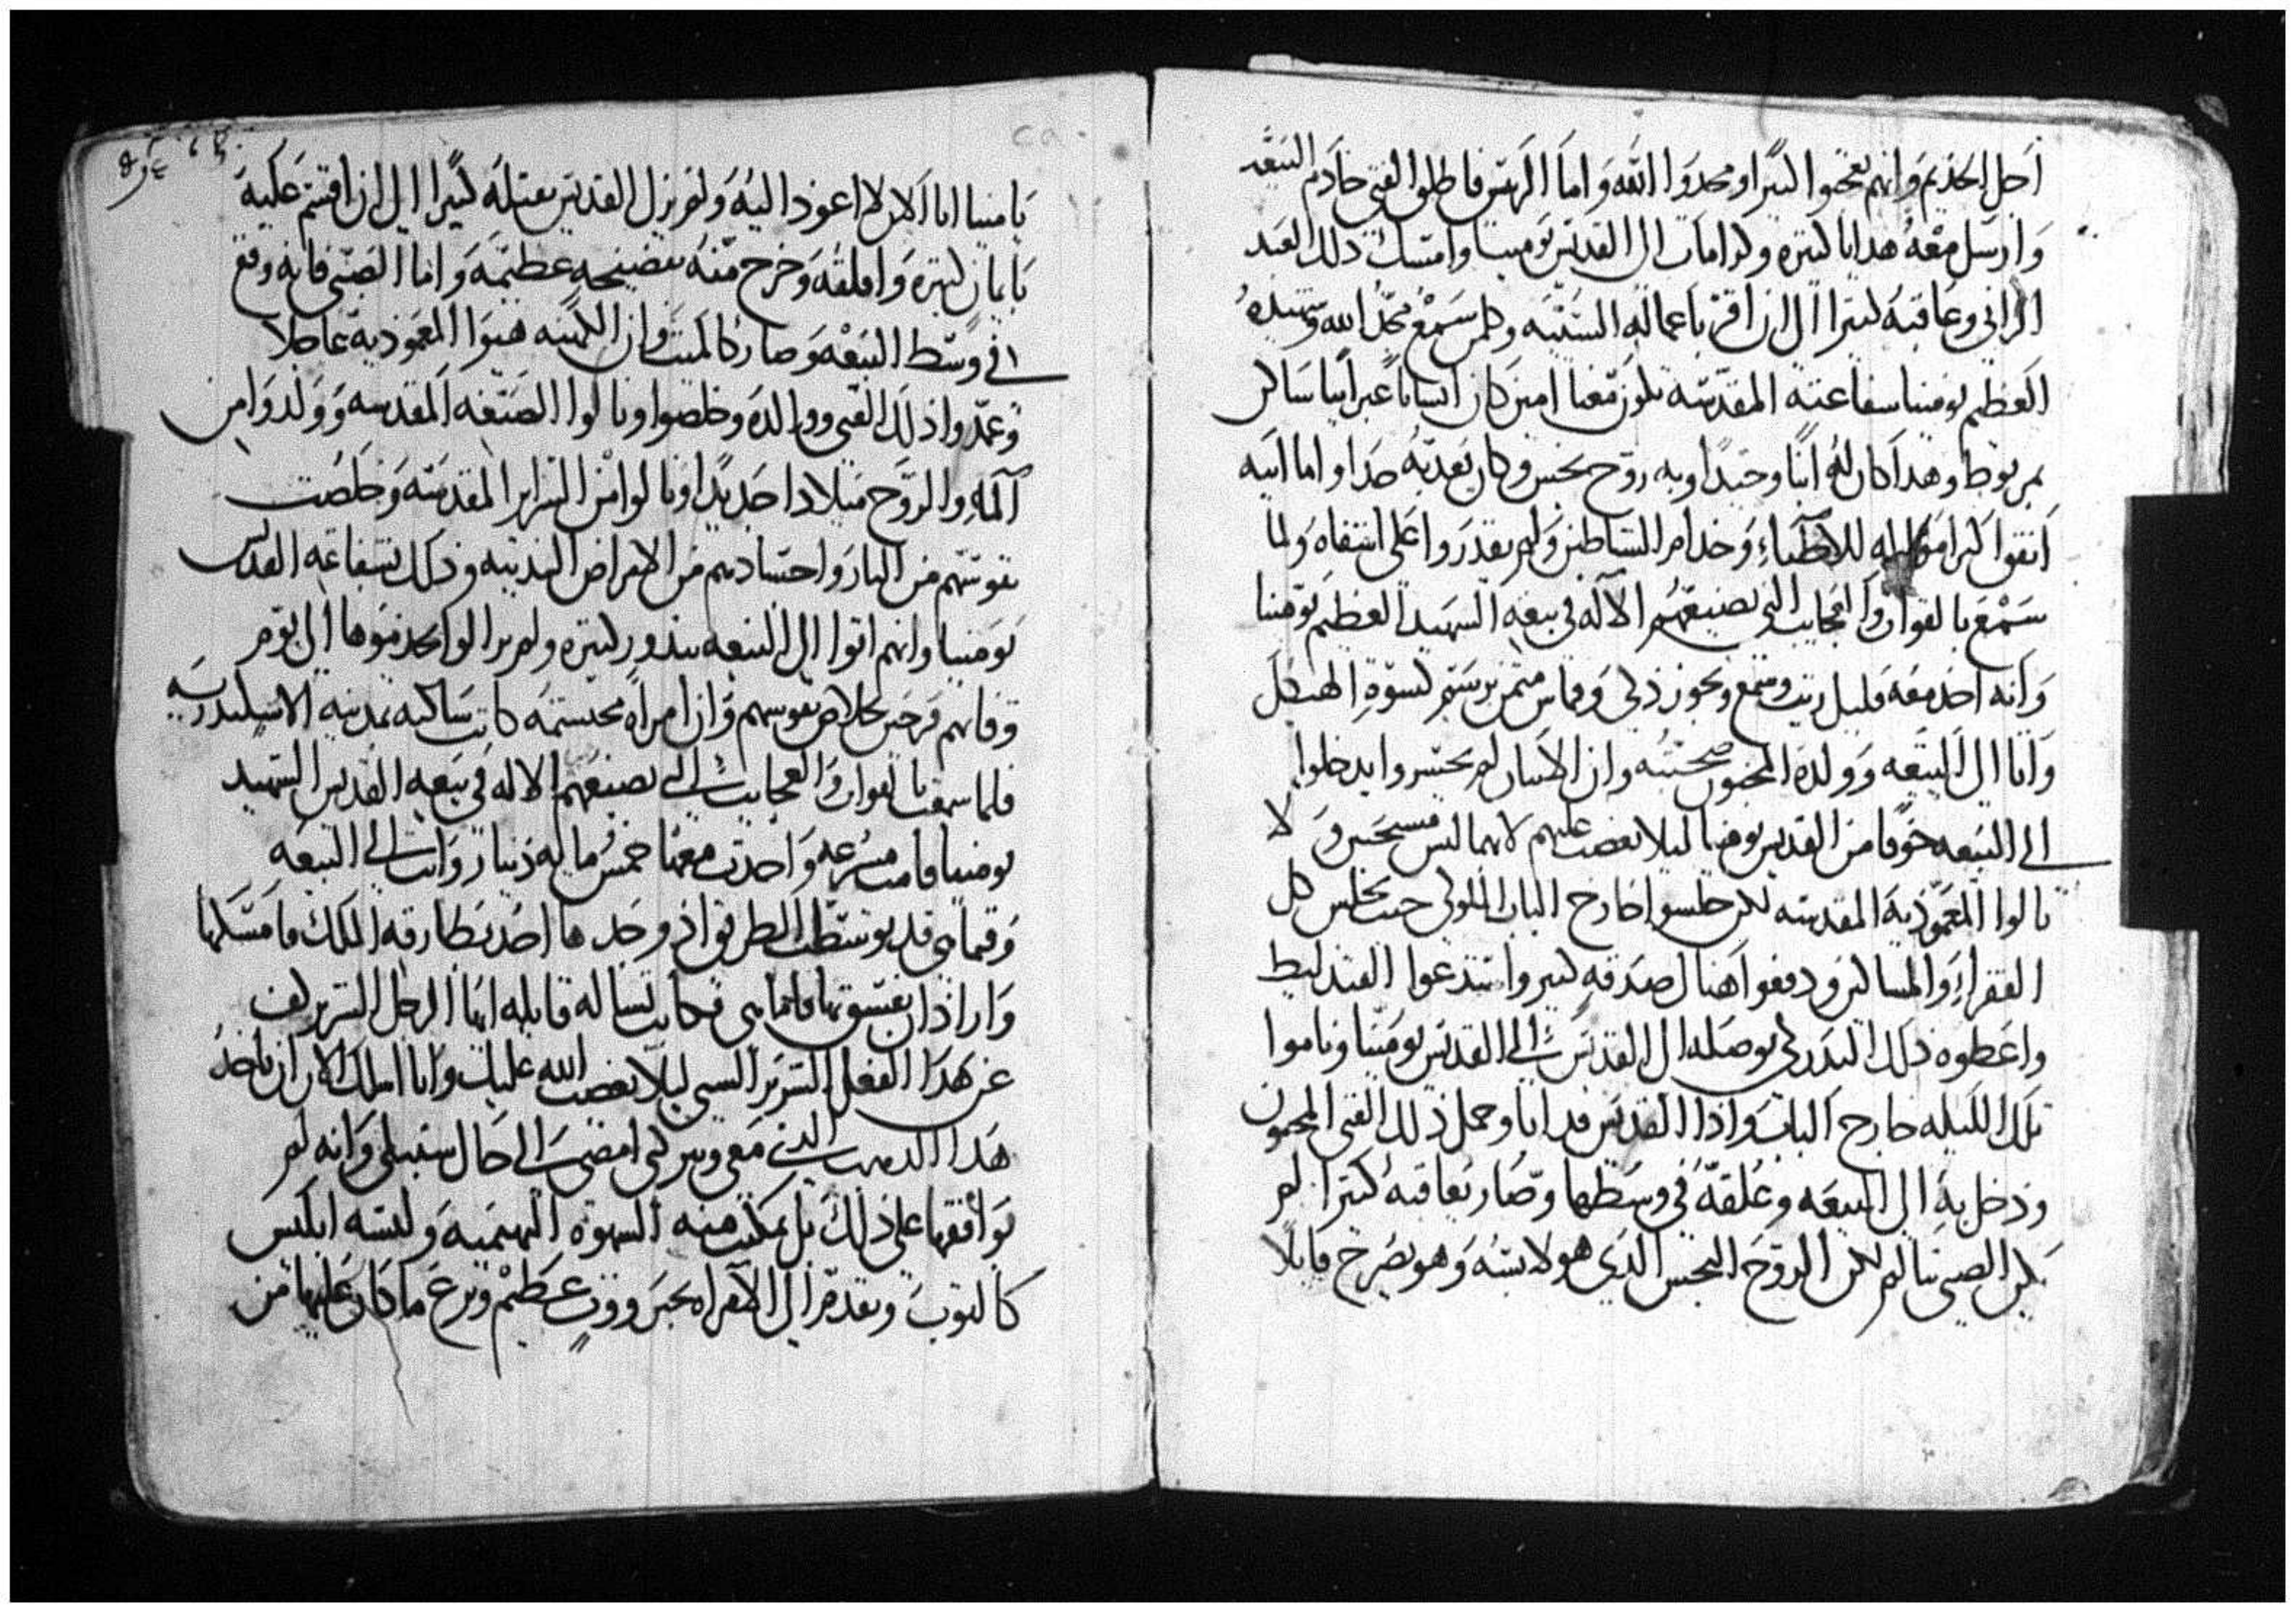 اجل الخديم وانهم تعجبوا كثيرا ومجدوا الله واما الريس فاطلق الفتي خادم البيعه
وارسل معه هدايا كثيره وكرامات الي القديس بومينا وامسك ذلك العبد
الزاني وعاقبه كثيرا الي ان اقر باعماله السيئه وكلمن سمع مجد الله وشهيده
العظيم بومينا شفاعته المقدسه تكون معنا امين كان انسانا عبرانيا ساكن
بمريوط وهدا كان له ابنا وحيدا وبه روح نجس وكان يعدبه جدا واما ابيه
انفق كل امواله للاطباء وخدام الشياطين ولم يقدروا علي اشفاه ولما
سمع بالقوات والعجايب التي يصنعهم الاله في بيعه الشهيد العظيم بومينا
وانه اخد معه قليل زيت وشمع وبخور زكي وقماش برسم كسوة الهيكل
واتا الي البيعه وولده المجنون صحبته وان الاتنان لم يجسروا يدخلوا
الي البيعه خوفا من القديس بومينا ليلا يغضب عليهم لانهما ليس مسيحيين ولا
نالوا المعموديه المقدسه لكن جلسوا خارج الباب حيث يجلس كل
الفقراء والمساكين ودفعوا هناك صدقه كبير واستدعوا القندليط
واعطوه ذلك الندر لكي يوصله الي القديس بومينا وناموا
تلك الليله خارج الباب واذا القديس قد اتا وحمل ذلك الفتي المجنون
ودخل به الي البيعه وعلقه في وسطها وصار يعاقبه كثيرا لم
يكن الصبي يتالم لكن الروح النجس الدي هو لابسه وهو يصرخ قايلا
يامينا انا الان لا اعود اليه ولم يزل القديس كثيرا الي ان اقسم عليه
بايمان كثيره واطلقه وخرج منه بفضيحه عظيمه واما الصبي فانه وقع
في وسط البيعه وصار كالميت وان الكهنه هيوا المعموديه عاجلا
وعمدوا ذلك الفتي ووالده وخلصوا ونالوا الصبغه المقدسه وولدوا من
الماء والروح ميلادا جديدا ونالوا من السراير المقدسه وخلصت
نفوسهم من النار واجسادهم من الامراض البدنيه وذلك بشفاعه القديس
بومينا وانهم اتوا الي البيعه بندور كثيره ولم يزالوا يخدموها الي يوم
وفاتهم فرحين بخلاص نفوسهم وان امراه محتشمه كانت ساكنه بمدينه الاسكندريه
فلما سمعت بالقوات والعجايب التي يصنعهم الاله في بيعه القديس الشهيد
بومينا قامت مسرعه واخدت معها خمس مايه دينار واتت الي البيعه
وفيما هي قد توسطت الطريق واذ وجدها احد بطارقه الملك فامسكها
واراد ان يفسق بها فاما هي فكانت تساله قايله ايها الرجل الشرير كف
عن هدا الفعل الشرير السي ليلا يغضب الله عليك وانا اسلك الان ان تاخد
هدا الدهب الذي معي وتتركني امضي الي حال سبيلي وانه لم
يوافقها علي ذلك بل تمكنت منه الشهوه البهيميه ولبسه ابليس
كالثوب وتقدم الي الامراه بجبروت عظيم ونزع ما كان عليها من